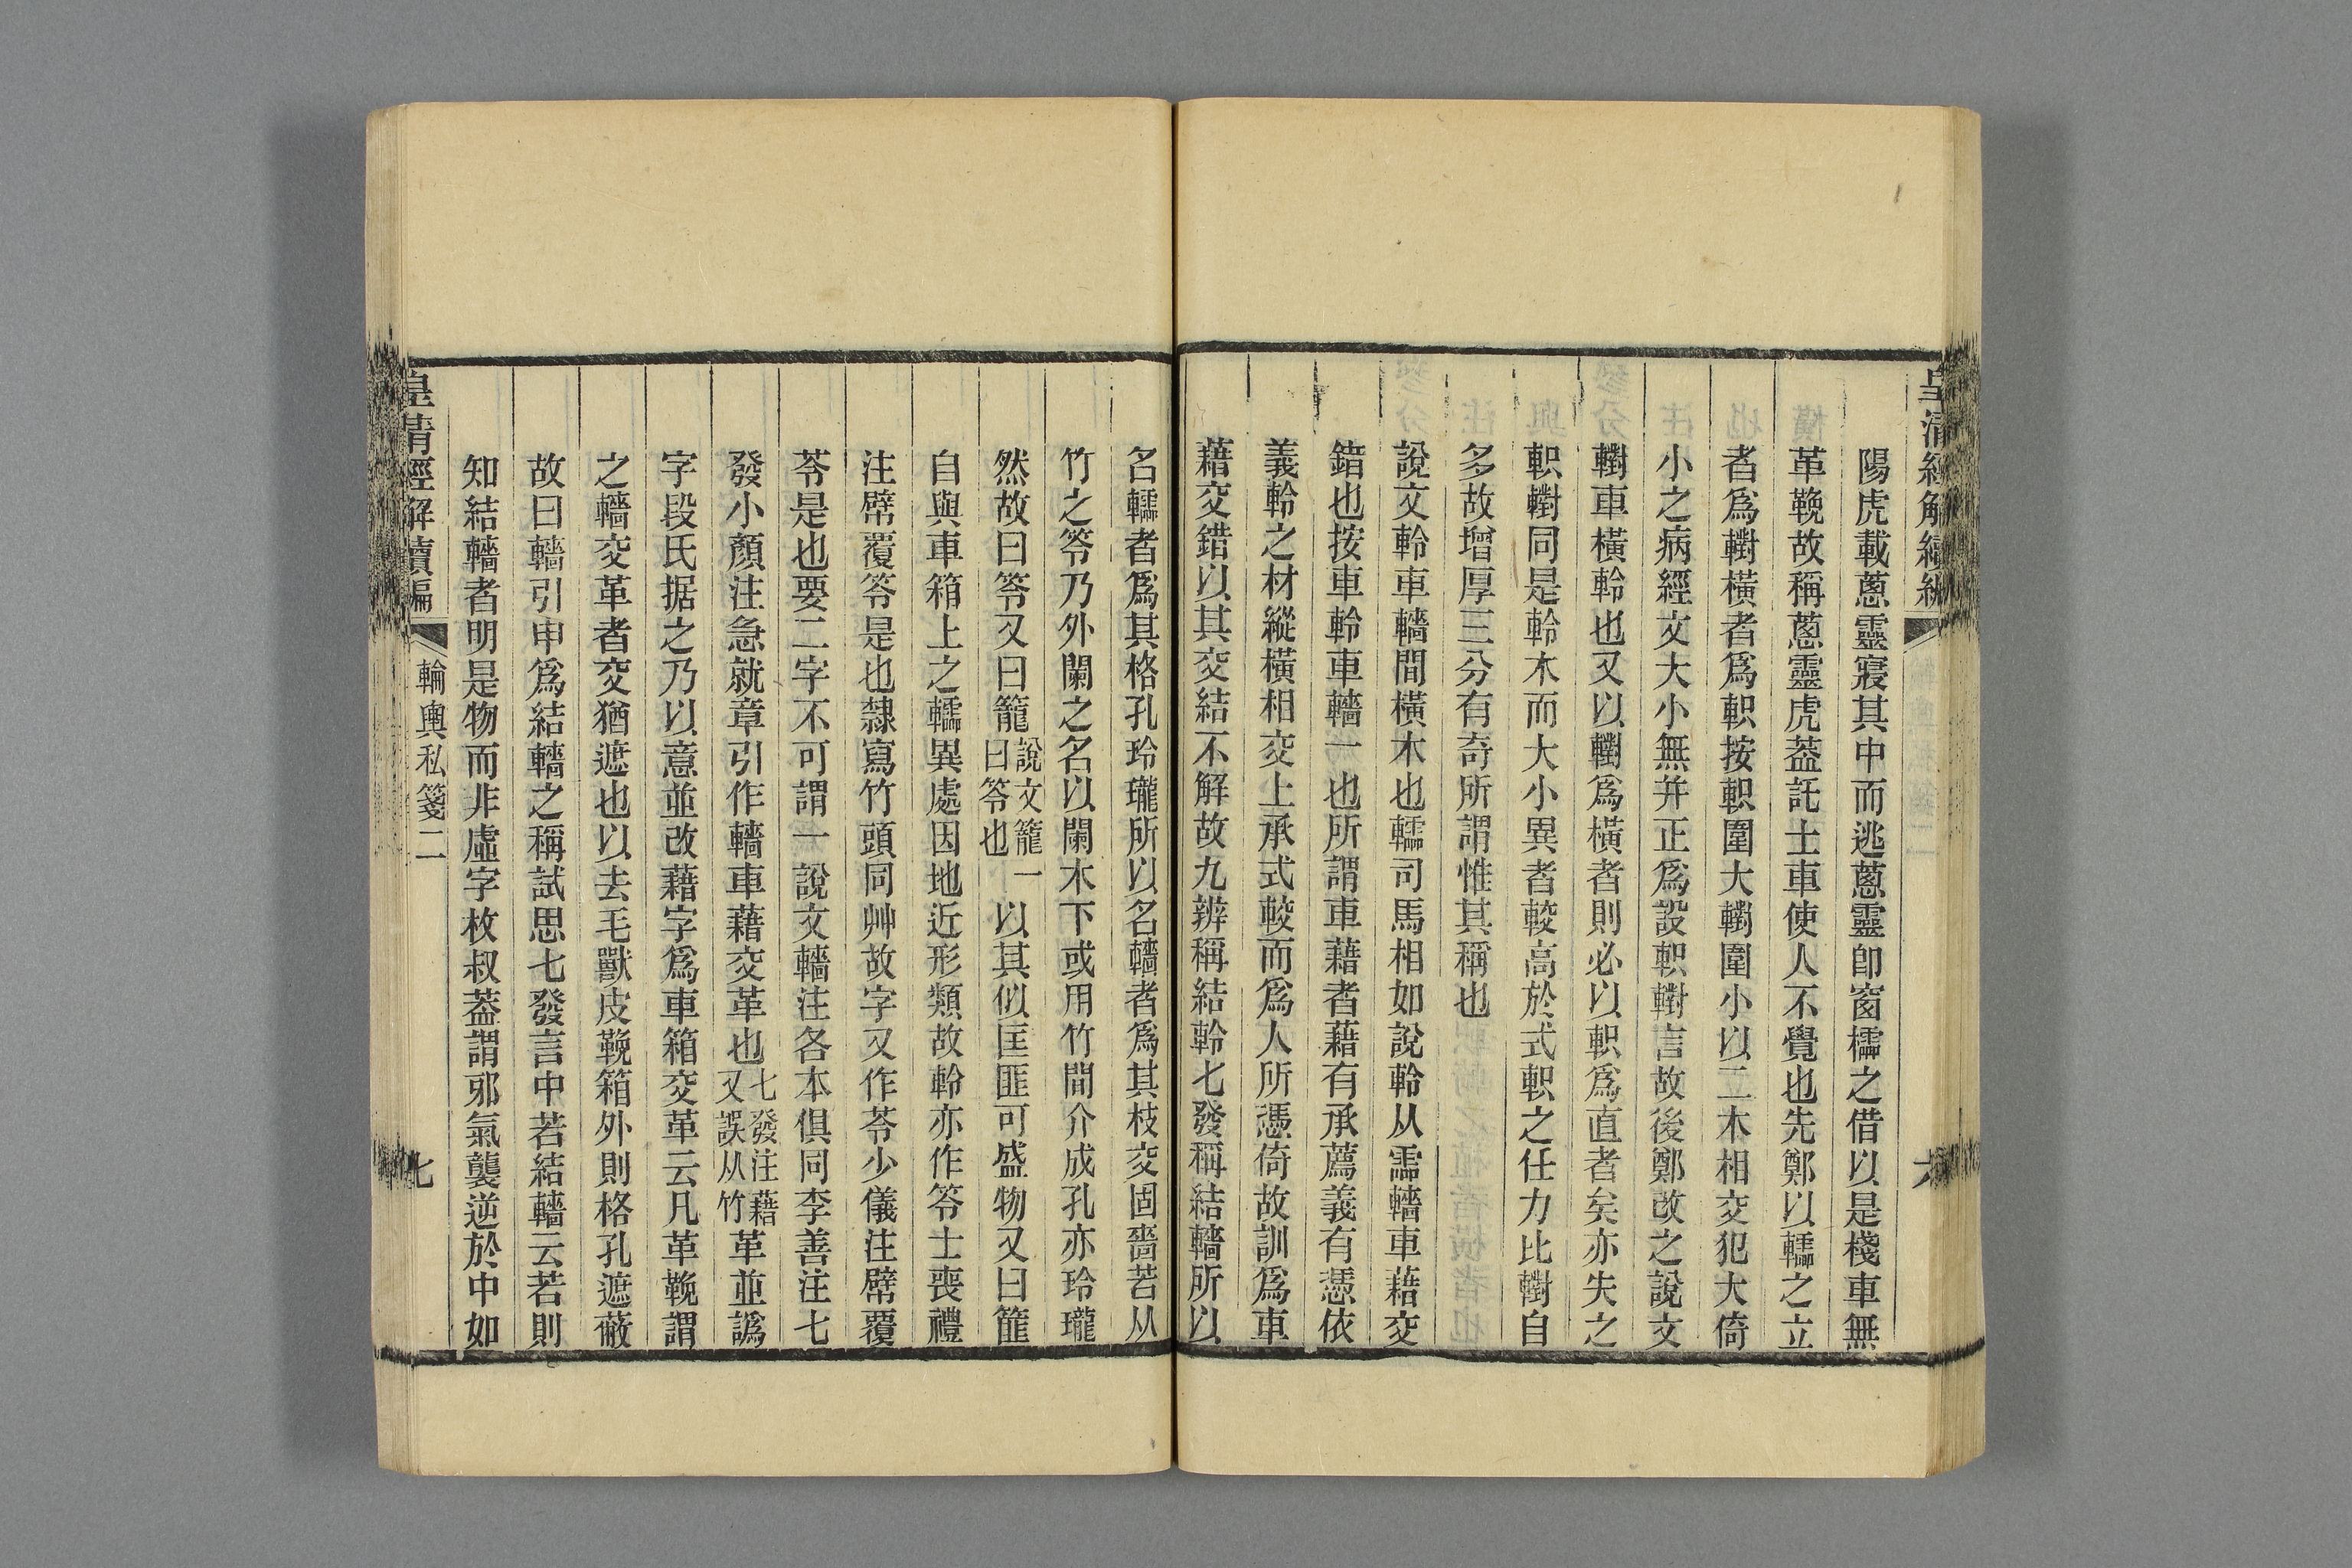 皇清經解續編
六
陽虎載蔥靈寢其中而逃蔥靈卽窗櫺之借以是棧車無
革鞔故稱蔥靈虎葢託士車使人不覺也先鄭以轜之立
者爲轛橫者爲軹按軹圍大轛圍小以二木相交犯大倚
小之病經文大小無幷正爲設軹轛言故後鄭改之說文
轛車橫軨也又以轛爲橫者則必以軹爲直者矣亦失之
軹轛同是軨木而大小異者較高於式軹之任力比轛自
多故增厚三分有奇所謂惟其稱也
說文軨車轖間橫木也轜司馬相如說軨从霝轖車藉交
錯也按車軨車轖一也所謂車藉者藉有承薦義有憑依
義軨之材縱橫相交上承式較而爲人所憑倚故訓爲車
藉交錯以其交結不解故九辨稱結軨七發稱結轖所以
名轜者爲其格孔玲瓏所以名轖者爲其枝交固嗇若从
竹之笭乃外闌之名以闌木下或用竹間介成孔亦玲瓏
然故曰笭又曰籠說文籠一曰笭也以其似匡匪可盛物又曰篚
自與車箱上之轜異處因地近形類故軨亦作笭士喪禮
注幦覆笭是也隸寫竹頭同艸故字又作苓少儀注幦覆
苓是也要二字不可謂一說文轖注各本俱同李善注七
發小顏注急就章引作轖車藉交革也七發注藉又誤从竹革並譌
字段氏据之乃以意並改藉字爲車箱交革云凡革鞔謂
之轖交革者交猶遮也以去毛獸皮鞔箱外則格孔遮蔽
故曰轖引申爲結轖之稱試思七發言中若結轖云若則
知結轖者明是物而非虛字枚叔葢謂邪氣襲逆於中如
皇清經解續編
輪輿私箋二
七